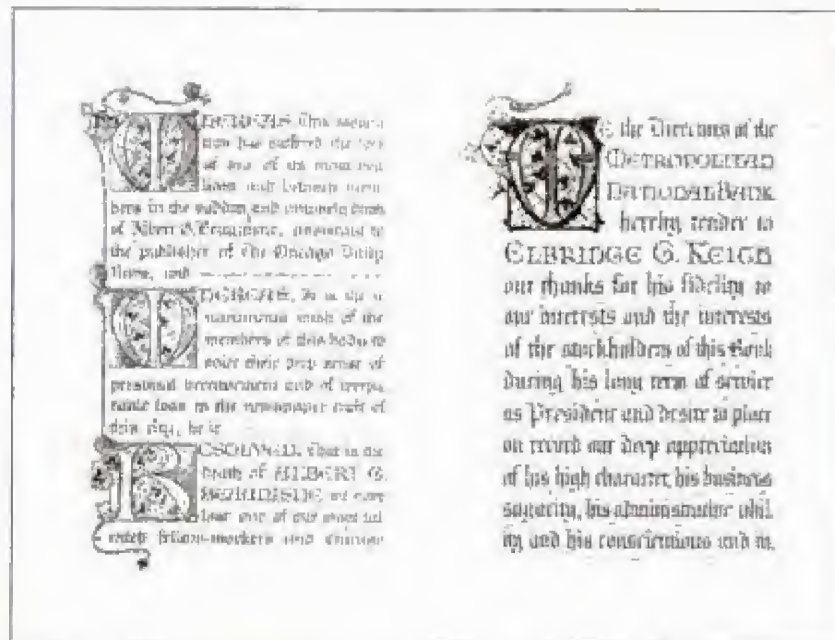 WHEREAS, This
has suffered the loss
of one of its most
and
bers in the sudden and untimely death
of Albert G.
the publisher of The Chicago Daily
News, and
WHEREAS, It is the
wish of the
members of this body to
their deep sense of
personal bereavement and of
loss to the newspaper craft of
this city, be it
RESOLVED, That in the
death of ALBERT G.
we
one of our most
fellow-workers and
WE the Directors of the
METROPOLITAN
NATIONAL BANK
hereby tender to
ELBRIDGE G. KEITH
our thanks for his fidelity to
our interests and the interests
of the stockholders of this Bank
during his long term of service
as President and desire to place
on record our deep appreciation
of his high character, his business
sagacity, his administrative abil
ity and his conscientious and